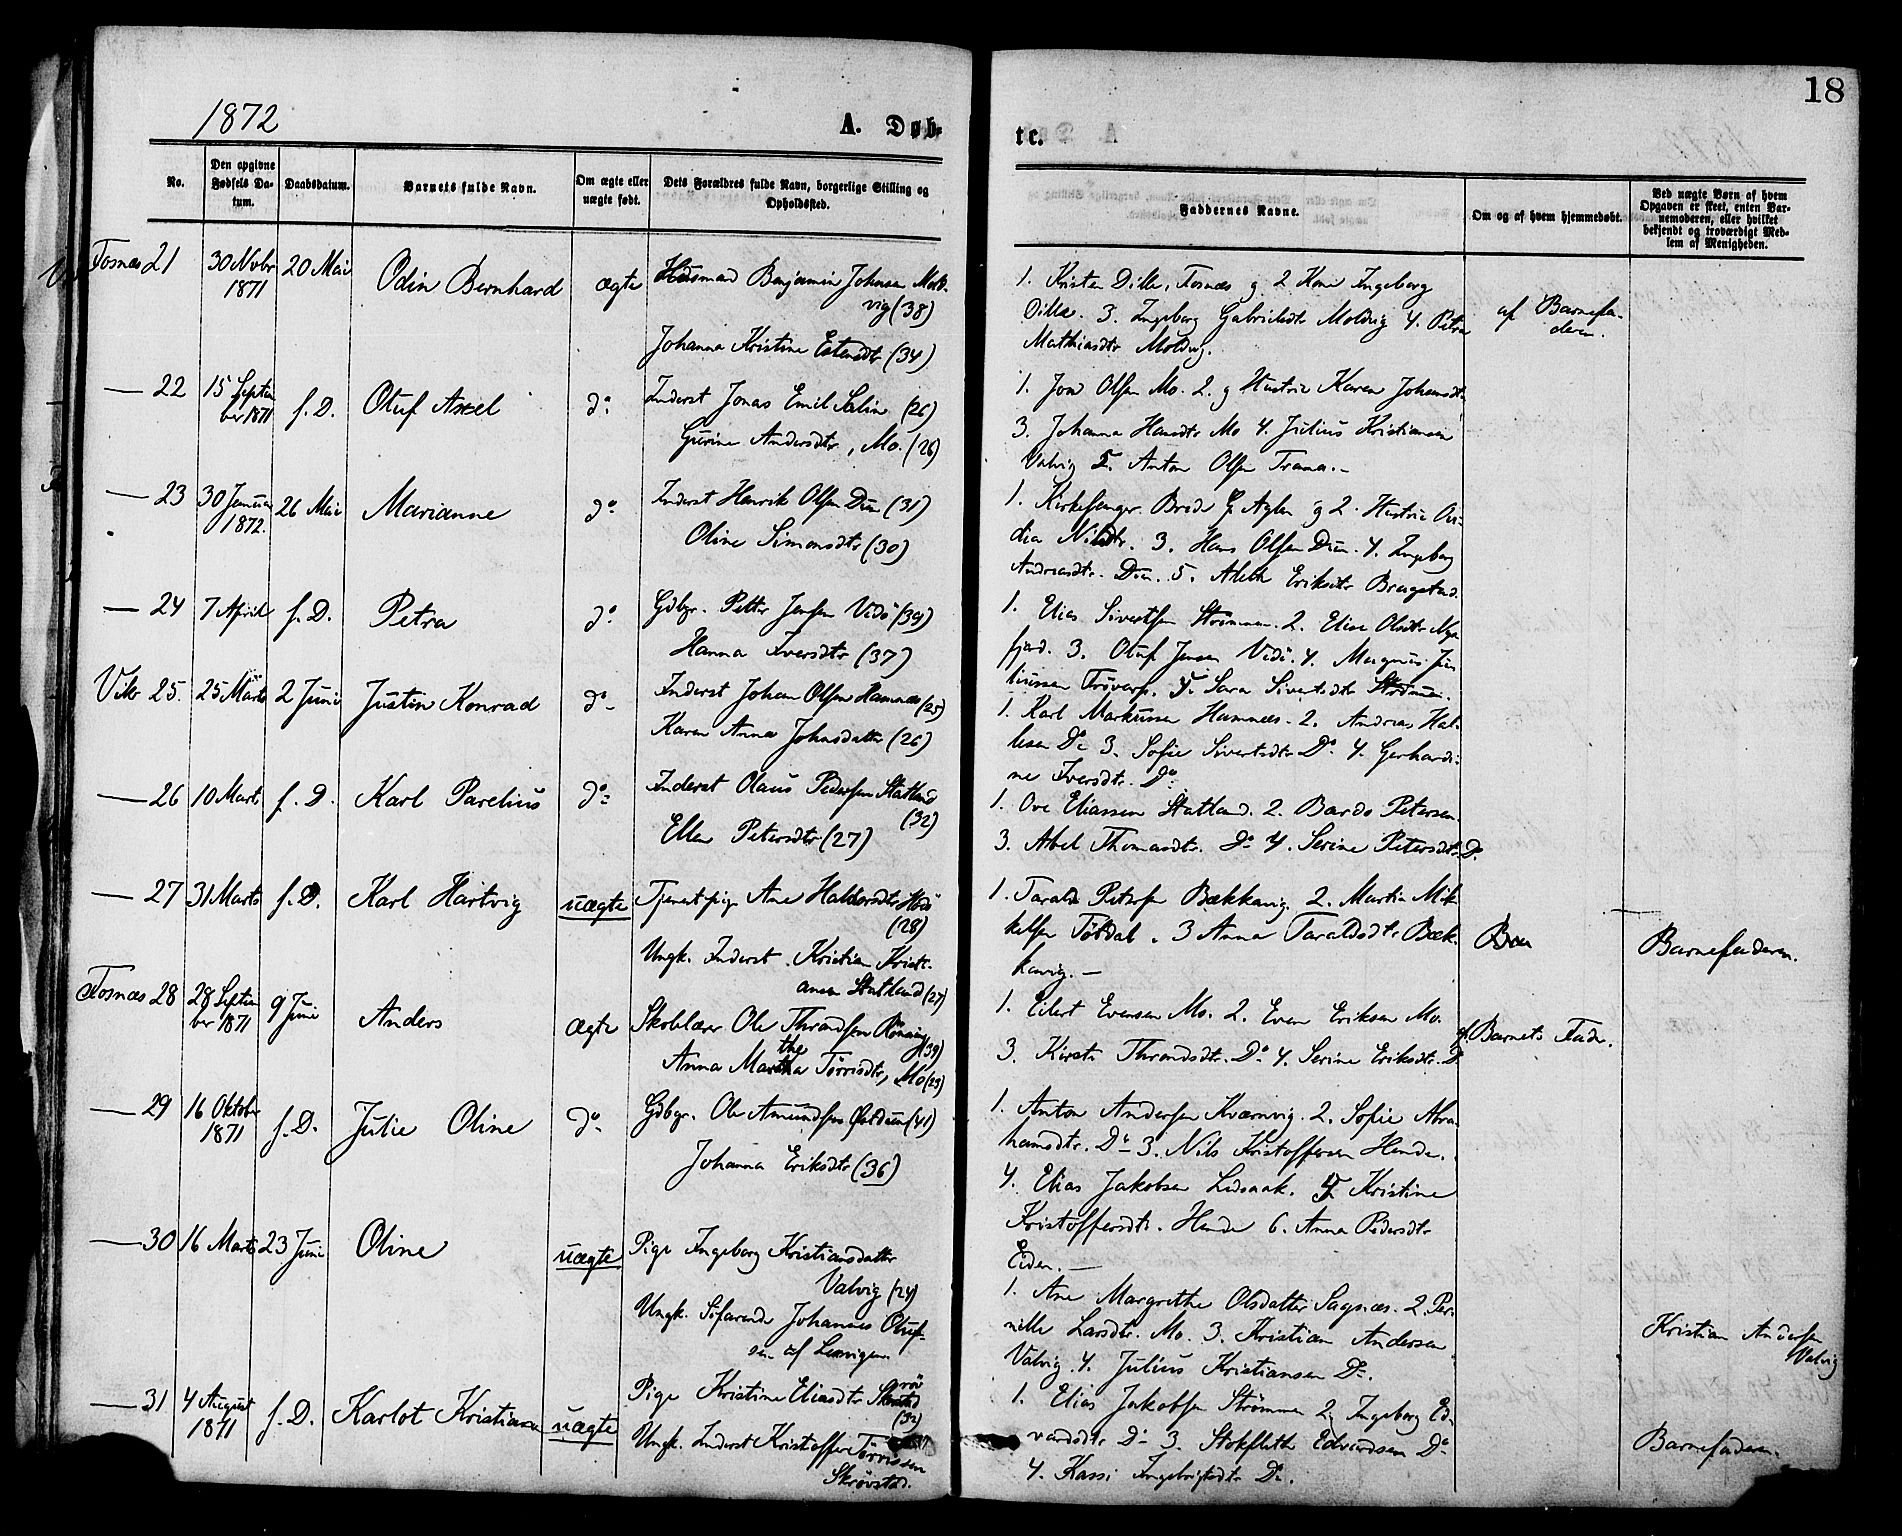 18
1872
A. Døb-
te.
No.
Den opgivne Fødsels Da-tum.
Daabsdatum.
Barnets fulde Navn.
Om ægte eller uægte født.
Dets Forældres fulde Navn, borgerlige Stilling og Opholdssted.
Faddernes Navne.
Om og af hvem hjemmedøbt.
Ved uægte Børn af hvem Opgaven er skeet, enten Bar-nemoderen, eller hvilket bekjendt og troværdigt Med-lem af Menigheden.
Fosnæs 21
30 Novbr 1871
20 Mai
Odin Bernhard
ægte
Husmand Benjamin Johnsen Mold-
vig (38)
Johanna Kristine Estensdtr (34)
1. Kristen Dille, Fosnæs g 2 Kone Ingeborg
Dille. 3. Ingeborg Gabrielsdtr Moldvig 4. Petra
Mathiasdtr Moldvig.
af Barnefa-
deren
— 22
15 Septem
ber 1871
f. D.
Otuf Axel
do
Inderst Jonas Emil Salin (26)
Gurine Andersdtr, Mo. (26)
1. Jon Olsen Mo. 2. g Hustrie Karen Johansdtr
3. Johanna Hansdtr Mo 4. Julius Kristiansen
Valvig 5. Anton Olsen Trana.-
— 23
30 Januar
1872.
26 Mai
Marianne
do
Inderst Henrik Olsen Dun (31)
Oline Simonsdtr (30)
1. Kirkesanger Brede E Aglen g 2. Hustrie Ovi-
dia Nilsdtr. 3. Hans Olsen Dun. 4. Ingeborg
Andreasdtr. Dun. 5. Aleth Eriksdtr Bragstad.
— 24
7 April
f. D.
Petra
do
Gdbgr. Petter Jensen Vidö (39)
Hanna Iversdtr (37)
1. Elias Sivertsen Strömmen. 2. Elise Olsdtr Nya-
fjord. 3. Otuf Jensen Vidö. 4. Magnus Ju-
liussen Frövarp. 5. Sara Sivertsdtr Strömmen.
Vikr 25.
25 Marts
2 Juni
Justin Konrad
do
Inderst Johan Olsen Hamnæs (25)
Karen Anna Johnsdatter (26)
1. Karl Markussen Hamnæs. 2. Andreas Hal-
lesen Do 3. Sofie Sivertsdtr. Do 4. Gerhardi-
ne Iversdtr. Do
— 26
10 Marts
f. D.
Karl Parelius
do
Inderst Olaus Pedersen Statland
(32)
Ellen Petersdtr (27)
1. Ove Eliassen Statland. 2. Bardo Petersen.
3. Abel Thomasdtr. Do 4. Serine Petersdtr Do
— 27
31 Marts
f. D.
Karl Hartvig
uægte
Tjenestpige Ane Haldorsdtr
(28)
Ungk. Inderst. Kristian Kristi-
ansen Statland (27)
1. Tarald Petersen Bækkavig. 2. Martin Mik-
kelsen Tötdal. 3 Anna Taraldsdtr Bæk-
kavig.-
Barnefaderen.
Fosnæs 28
28 Septem
ber 1871
9 Juni
Anders
ægte
Skolelærer Ole Thrandsen Rönning
(39)
Anna Marthe Törrisdtr, Mo (23)
1. Eilert Evensen Mo. 2. Even Eriksen Mo.
3. Kirsti Thrandsdtr. Do 4. Serine Eriksdtr. Do
af Barnets Fader.
— 29
16 Oktobr
1871
f. D.
Julie Oline
do
Gdbgr. Ole Amundsen (41)
Johanna Eriksdtr (36)
1. Anton Andersen Kværnvig. 2. Sofie Abra-
hamsdtr. Do 3. Nils Kristoffersen Hende.
4. Elias Jakobsen 5 Kristine
Kristoffersdtr. Hende 6. Anna Pedersdtr
Eiden.-
— 30
16 Marts
23 Juni
Oline
uægte
Pige Ingeborg Kristiansdatter
Valvig (24)
Ungk. Söfarende Johannes Otuf-
sen af Lemvigen
1. Ane Margrethe Olsdatter Sagnæs. 2. Per-
nille Larsdtr. Mo. 3. Kristian Andersen
Valvig. 4. Julius Kristiansen Do.
Kristian Andersen
Valvig
— 31
4 August
1871
f. D.
Karlot Kristiane
uægte
Pige Kristine Eliasdtr
(32)
Ungk. Inderst Kristoffer Törrissen
Skrövstad.
1. Elias Jakobsen Strömmen 2. Ingeborg Ed-
vardsdtr Do 3. Stokfleth Edvardsen Do
4. Kassi Ingebrigtsdtr Do.
Barnefaderen.